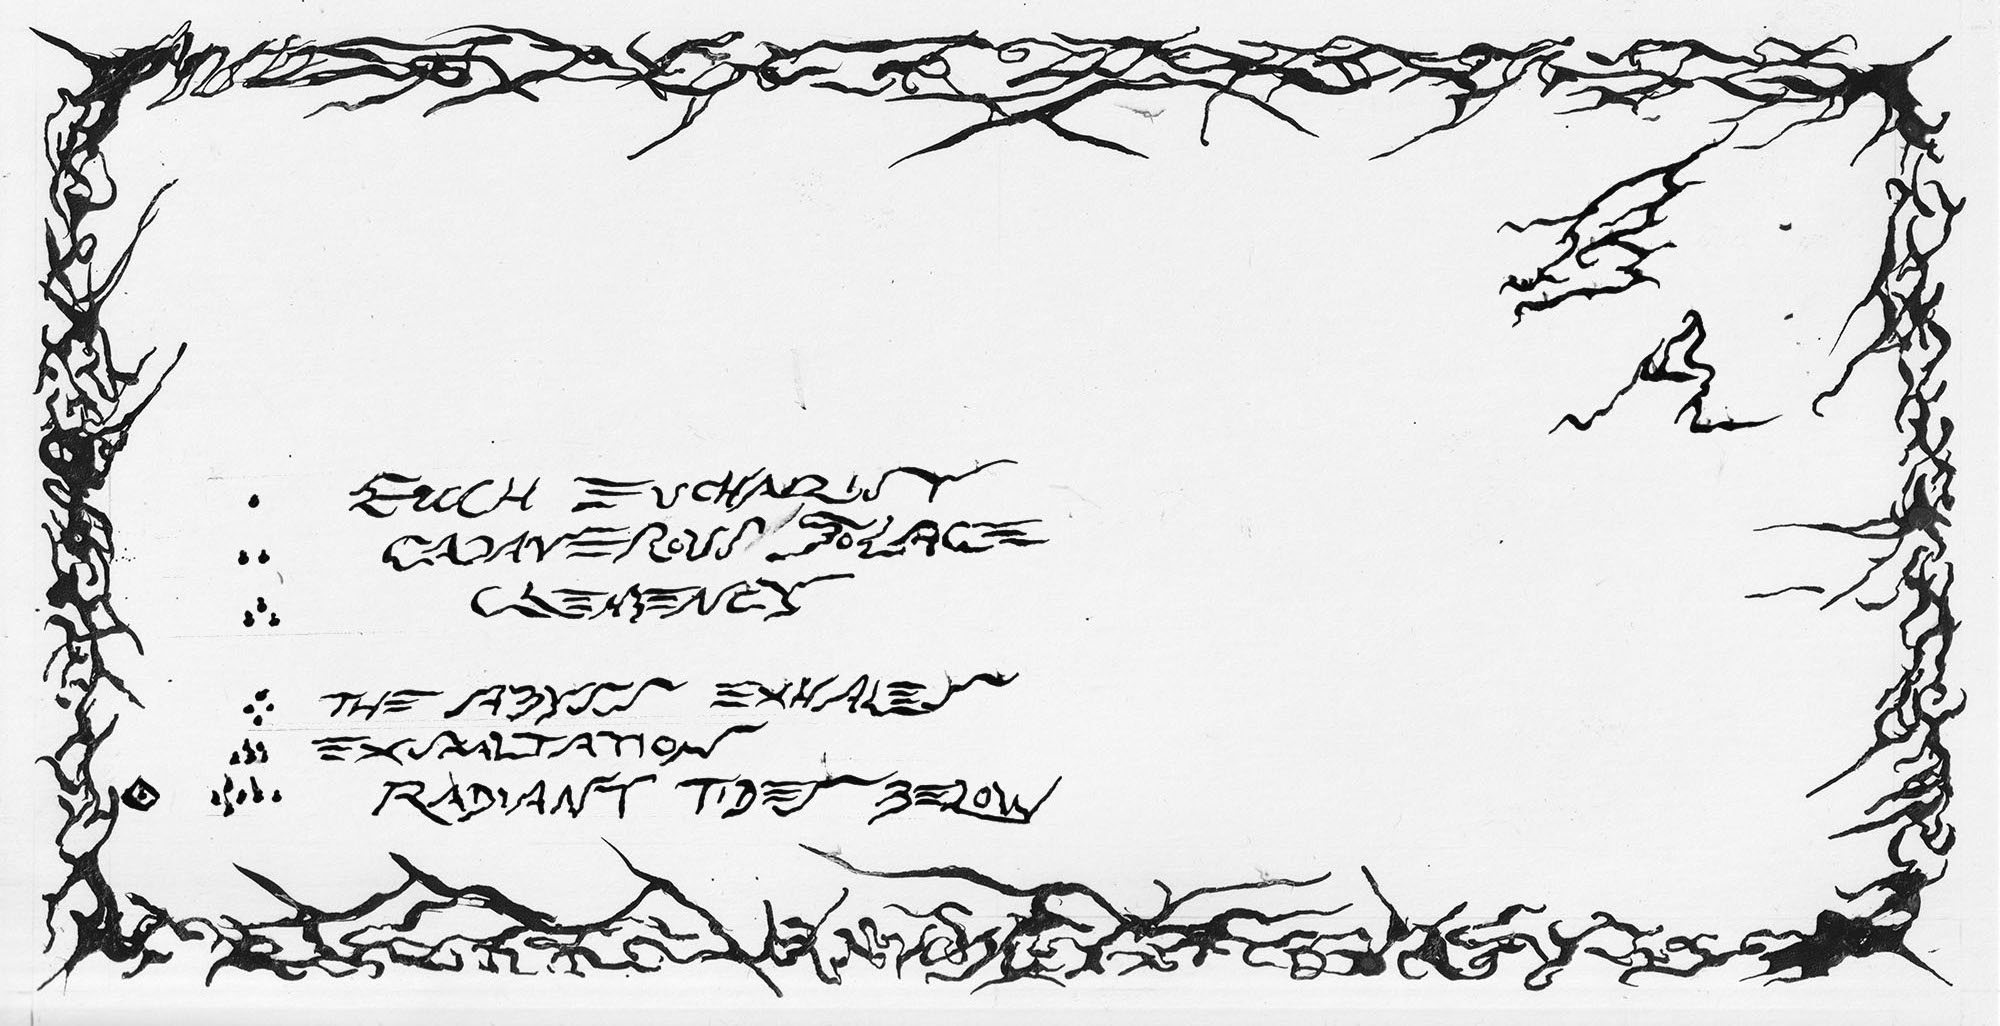 EUCH EUCHARIST
CADAVEROUS SOLACE
CLEMENCY
THE ABYSS EXHALES
EXALTATION
RADIANT TIDES BELOW